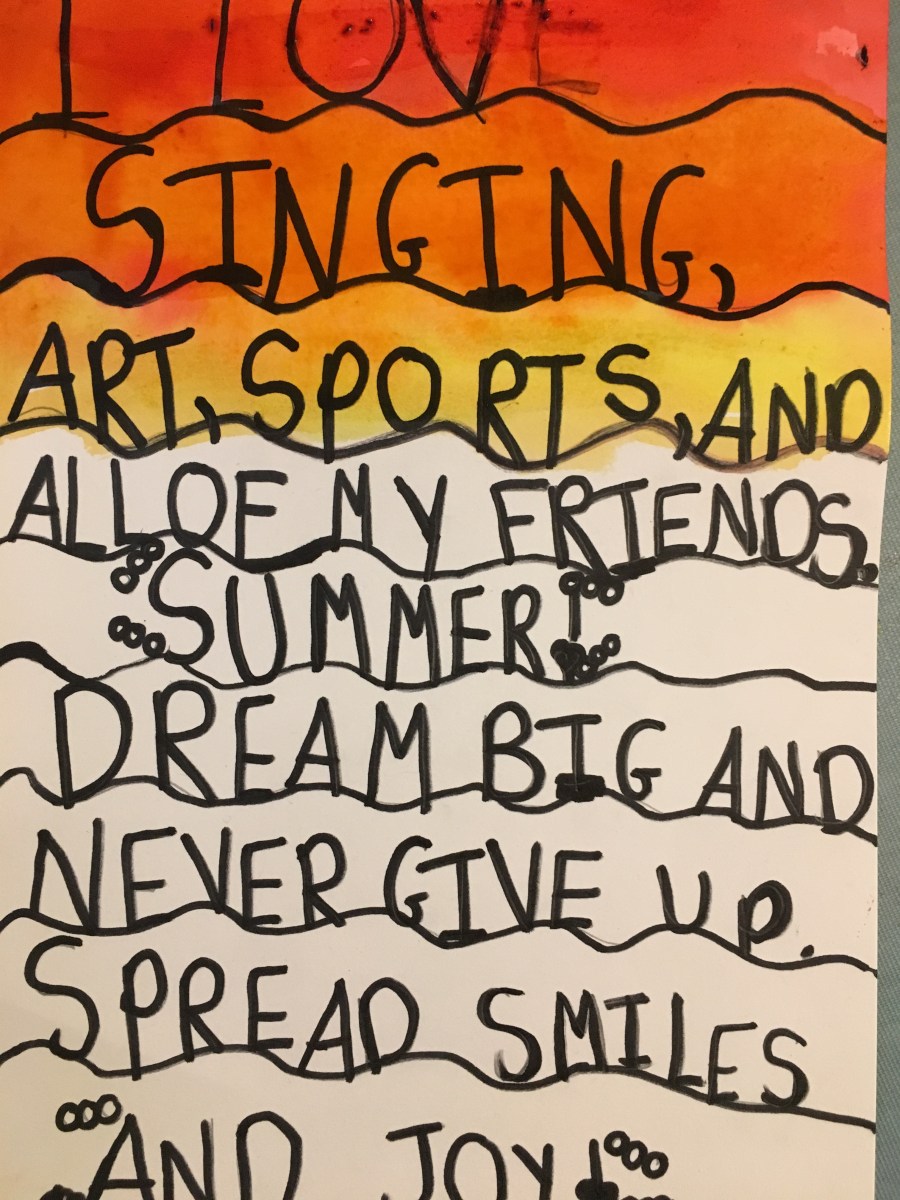 I LOVE
SINGING,
ART, SPORTS, AND
ALL OF MY FRIENDS.
SUMMER!
DREAM BIG AND
NEVER GIVE UP.
SPREAD SMILES
AND JOY!